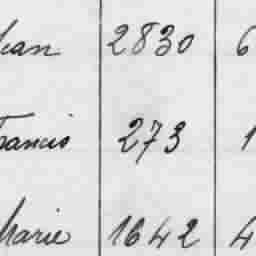 Jean 2830 6
Francis 273 1
Marie 1642 4